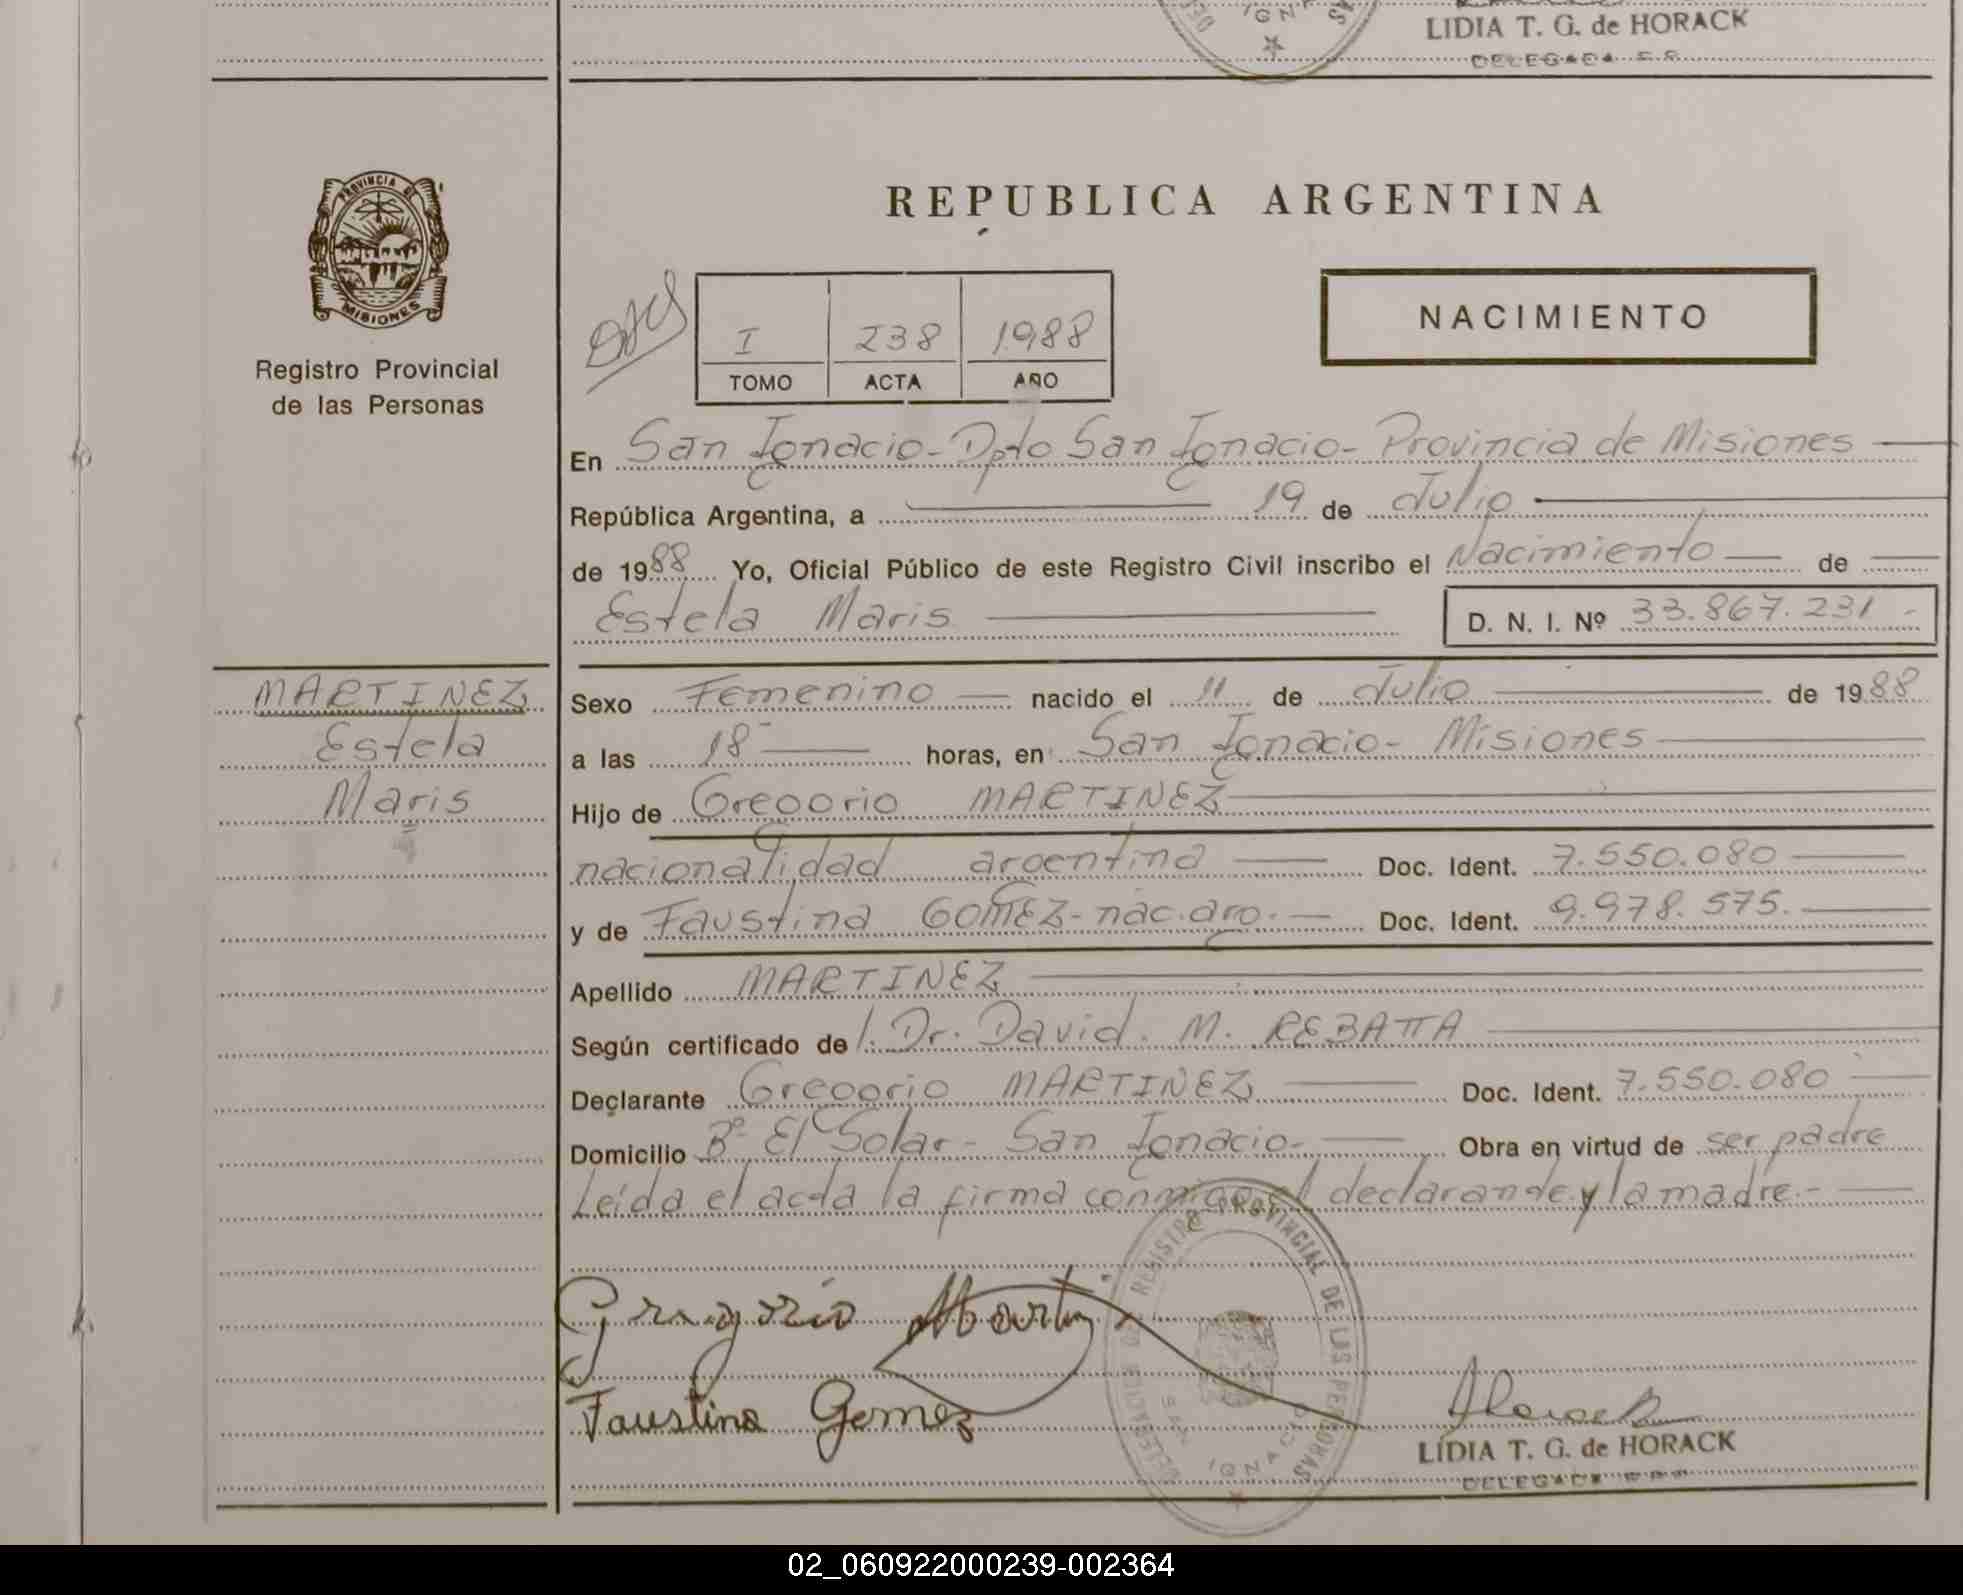 LIDIA T. G. de HORACK
DELEGADA
PROVINCIA DE
MISIONES
Registro Provincial
de las Personas
REPUBLICA ARGENTINA
NACIMIENTO
I 238 1988
TOMO ACTA AÑO
En San Ignacio - Dpto San Ignacio - Provincia de Misiones
República Argentina, a 19 de Julio
de 1988 Yo, Oficial Público de este Registro Civil inscribo el Nacimiento de
Estela Maris D. N. I. Nº 33.867.231.-
MARTINEZ
Estela
Maris
Sexo Femenino nacido el 11 de Julio de 1988
a las 18 horas, en San Ignacio - Misiones
Hijo de Gregorio MARTINEZ
nacionalidad argentina Doc. Ident. 7.550.080
y de Faustina GOMEZ - nac. arg. - Doc. Ident. 9.978.575.
Apellido MARTINEZ
Según certificado del Dr. David. M. REBATTA
Declarante Gregorio MARTINEZ Doc. Ident. 7.550.080
Domicilio Bº El Solar - San Ignacio - Obra en virtud de ser padre
Leída el acta la firma conmigo el declarante y la madre.-
Gregorio
Faustina Gomez
DELEGACION REGISTRO PROVINCIAL DE LAS PERSONAS
SAN IGNACIO
LIDIA T. G. de HORACK
DELEGADA
02_060922000239-002364